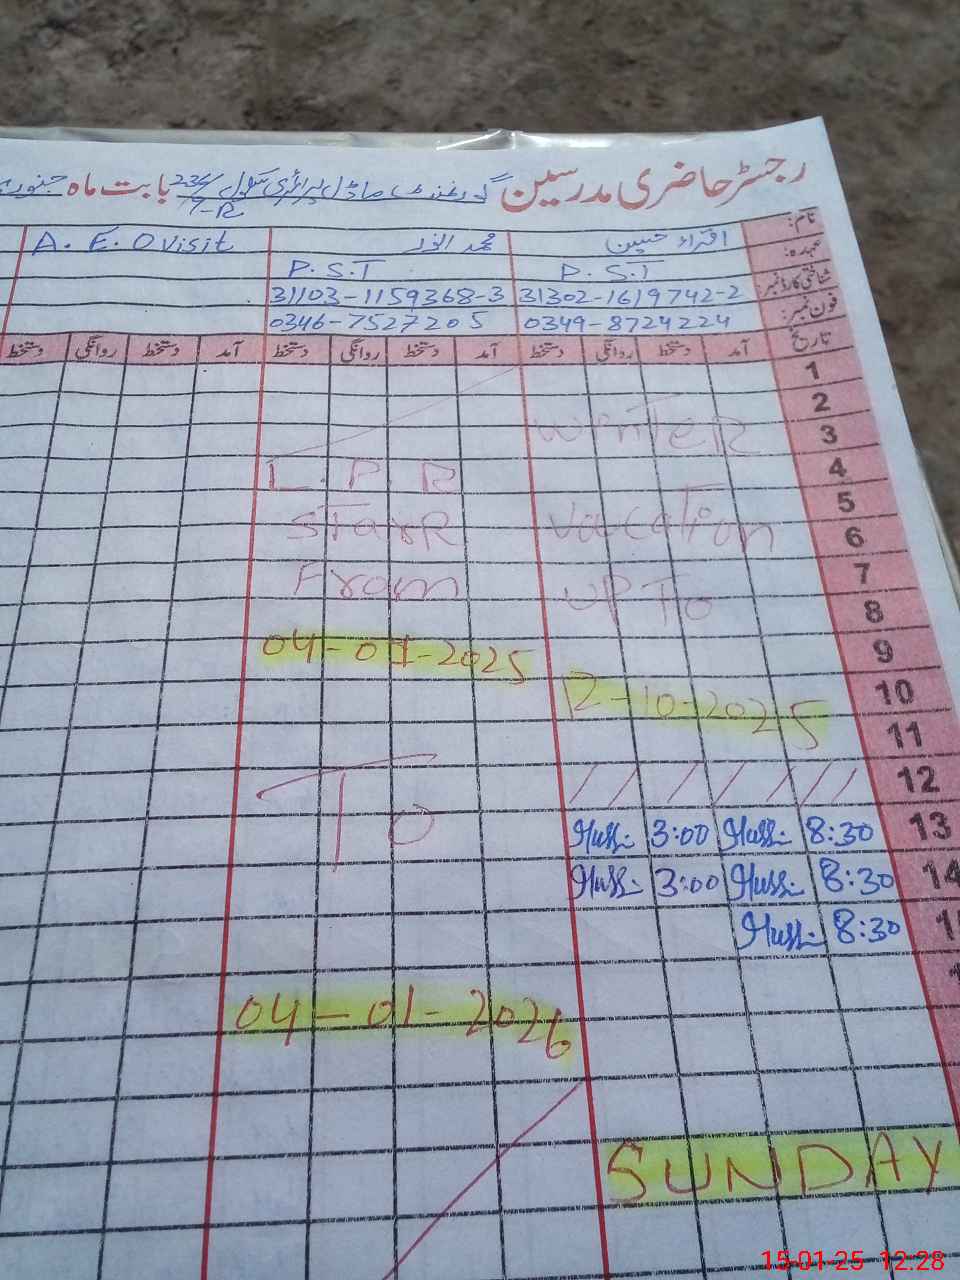 رجسٹر حاضری مدرسین گورنمنٹ ماڈل پرائمری سکول 236/ بابت ماہ جنوری
7-R
نام: اقرار حسین محمد انور A. E. O visit
عہدہ: P. S. T P. S. T
شناختی کارڈ نمبر: 31302-1619742-2 31103-1159368-3
فون نمبر: 0349-8724224 0346-7527205
تاریخ آمد دستخط روانگی دستخط آمد دستخط روانگی دستخط آمد دستخط روانگی دستخط
1
2
3 WinTER
4 L. P. R
5
6 Vacation STarR
7 From
8 UPTo
9 04-01-2025
10 12-10-2025
11
12 To
13 8:30 Huss. 3:00 Huss.
14 8:30 Huss. 3:00 Huss.
8:30 Huss.
04-01-2026
SUNDAY
15-01-25 12:28